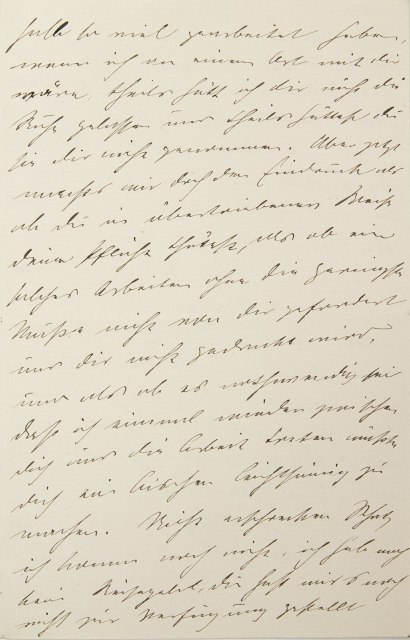 halb so viel gearbeitet haben,
wenn ich an einem Ort mit dir
wäre, theils hätt ich dir nicht die
Ruhe gelassen und theils hättest du
sie dir nicht genommen. Aber jetzt
macht's mir doch den Eindruck als
ob du in übertriebener Weise
deine Pflicht thätest, als ob ein
solches Arbeiten ohne die geringste
Muße nicht von dir gefordert
und dir nicht gedankt wird,
und als ob es nothwendig sei
daß ich einmal wieder zwischen
dich und die Arbeit treten müßte
dich ein bischen leichtsinnig zu
machen. Nicht erschrecken Schatz
ich komme noch nicht, ich hab noch
kein Reisegeld, du hast mir's noch
nicht zur Verfügung gestellt